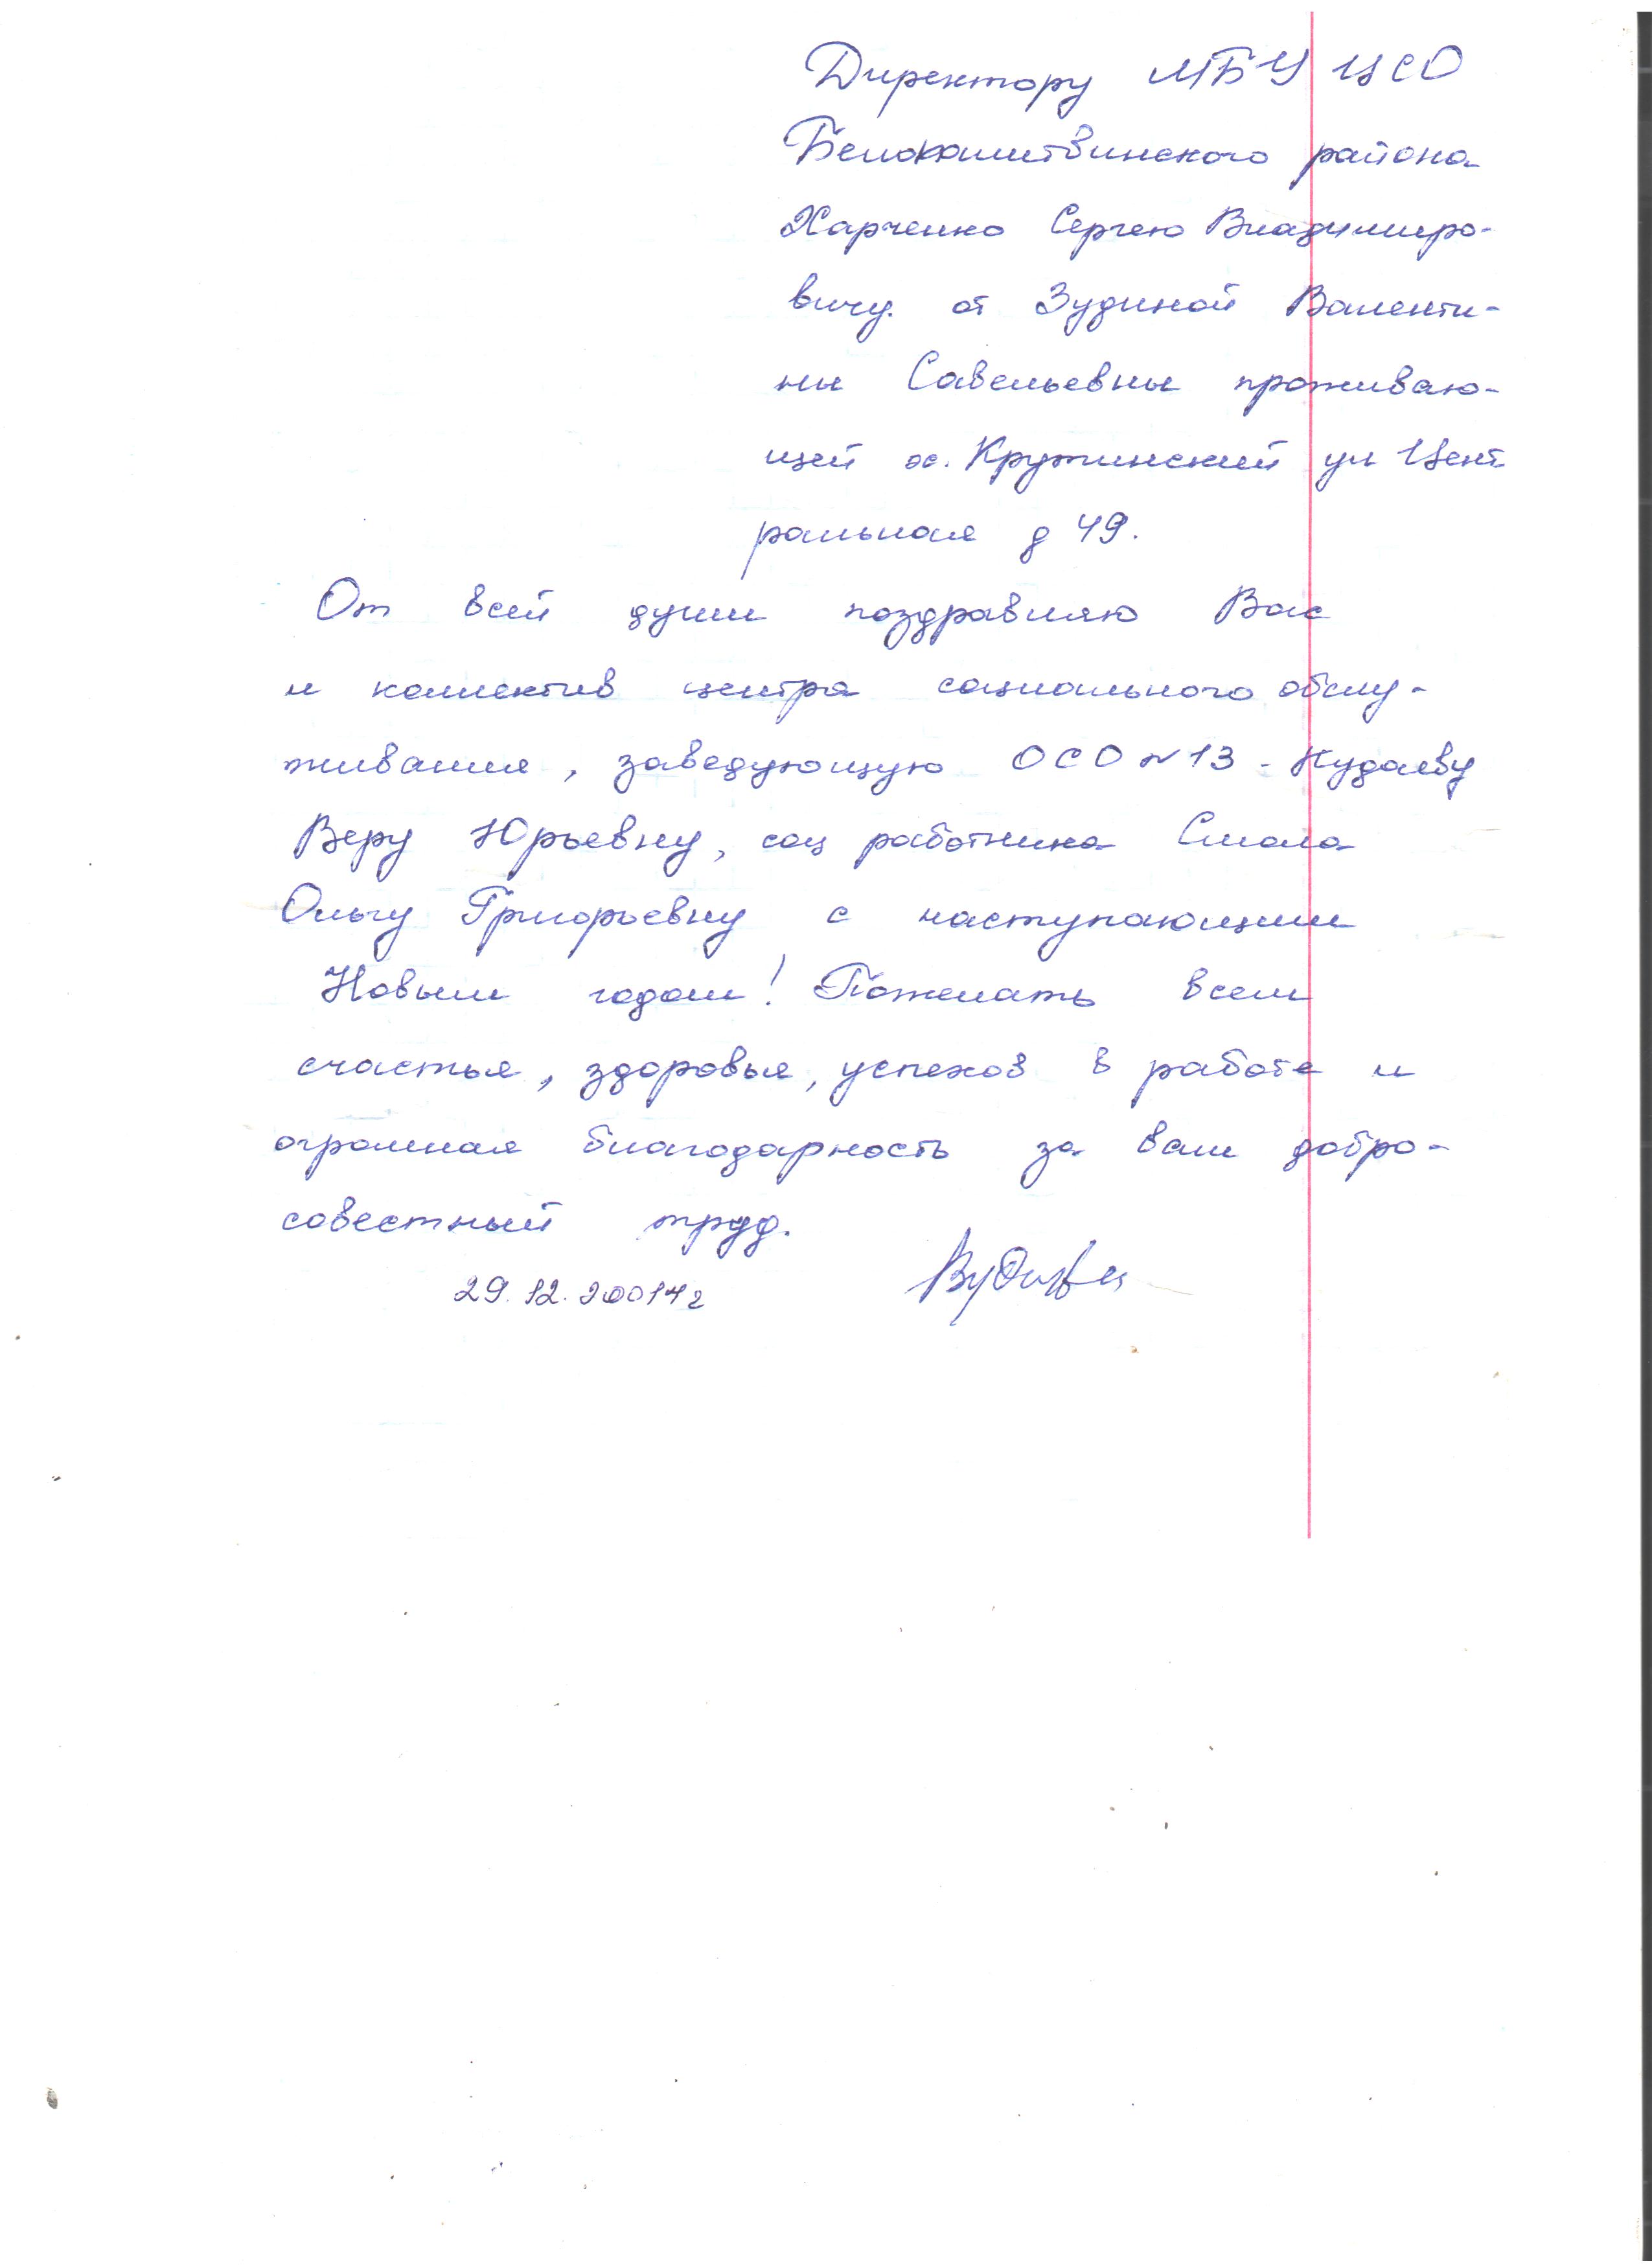 Директору МБУ ЦСО
Белокалитвинского района
Харченко Сергею Владимиро-
вичу. от Зудиной Валенти-
ны Савельевны проживаю-
щей х. Крутинский ул Цент
ральная д 49.
От всей души поздравляю Вас
и коллектив центра социального обслу-
живания, заведующую ОСО №13 - Кудаеву
Веру Юрьевну, соц работника
Ольгу Григорьевну с наступающим
Новым годом! Пожелать всем
счастья, здоровья, успехов в работе и
огромная благодарность за ваш добро-
совестный труд.
29.12.20014г